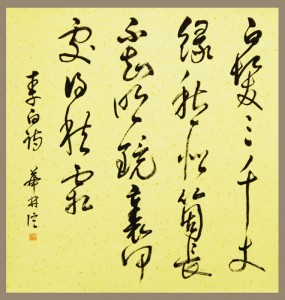 白髮三千丈
緣愁似箇長
不知明鏡裏何
處得秋霜
李白詩 華